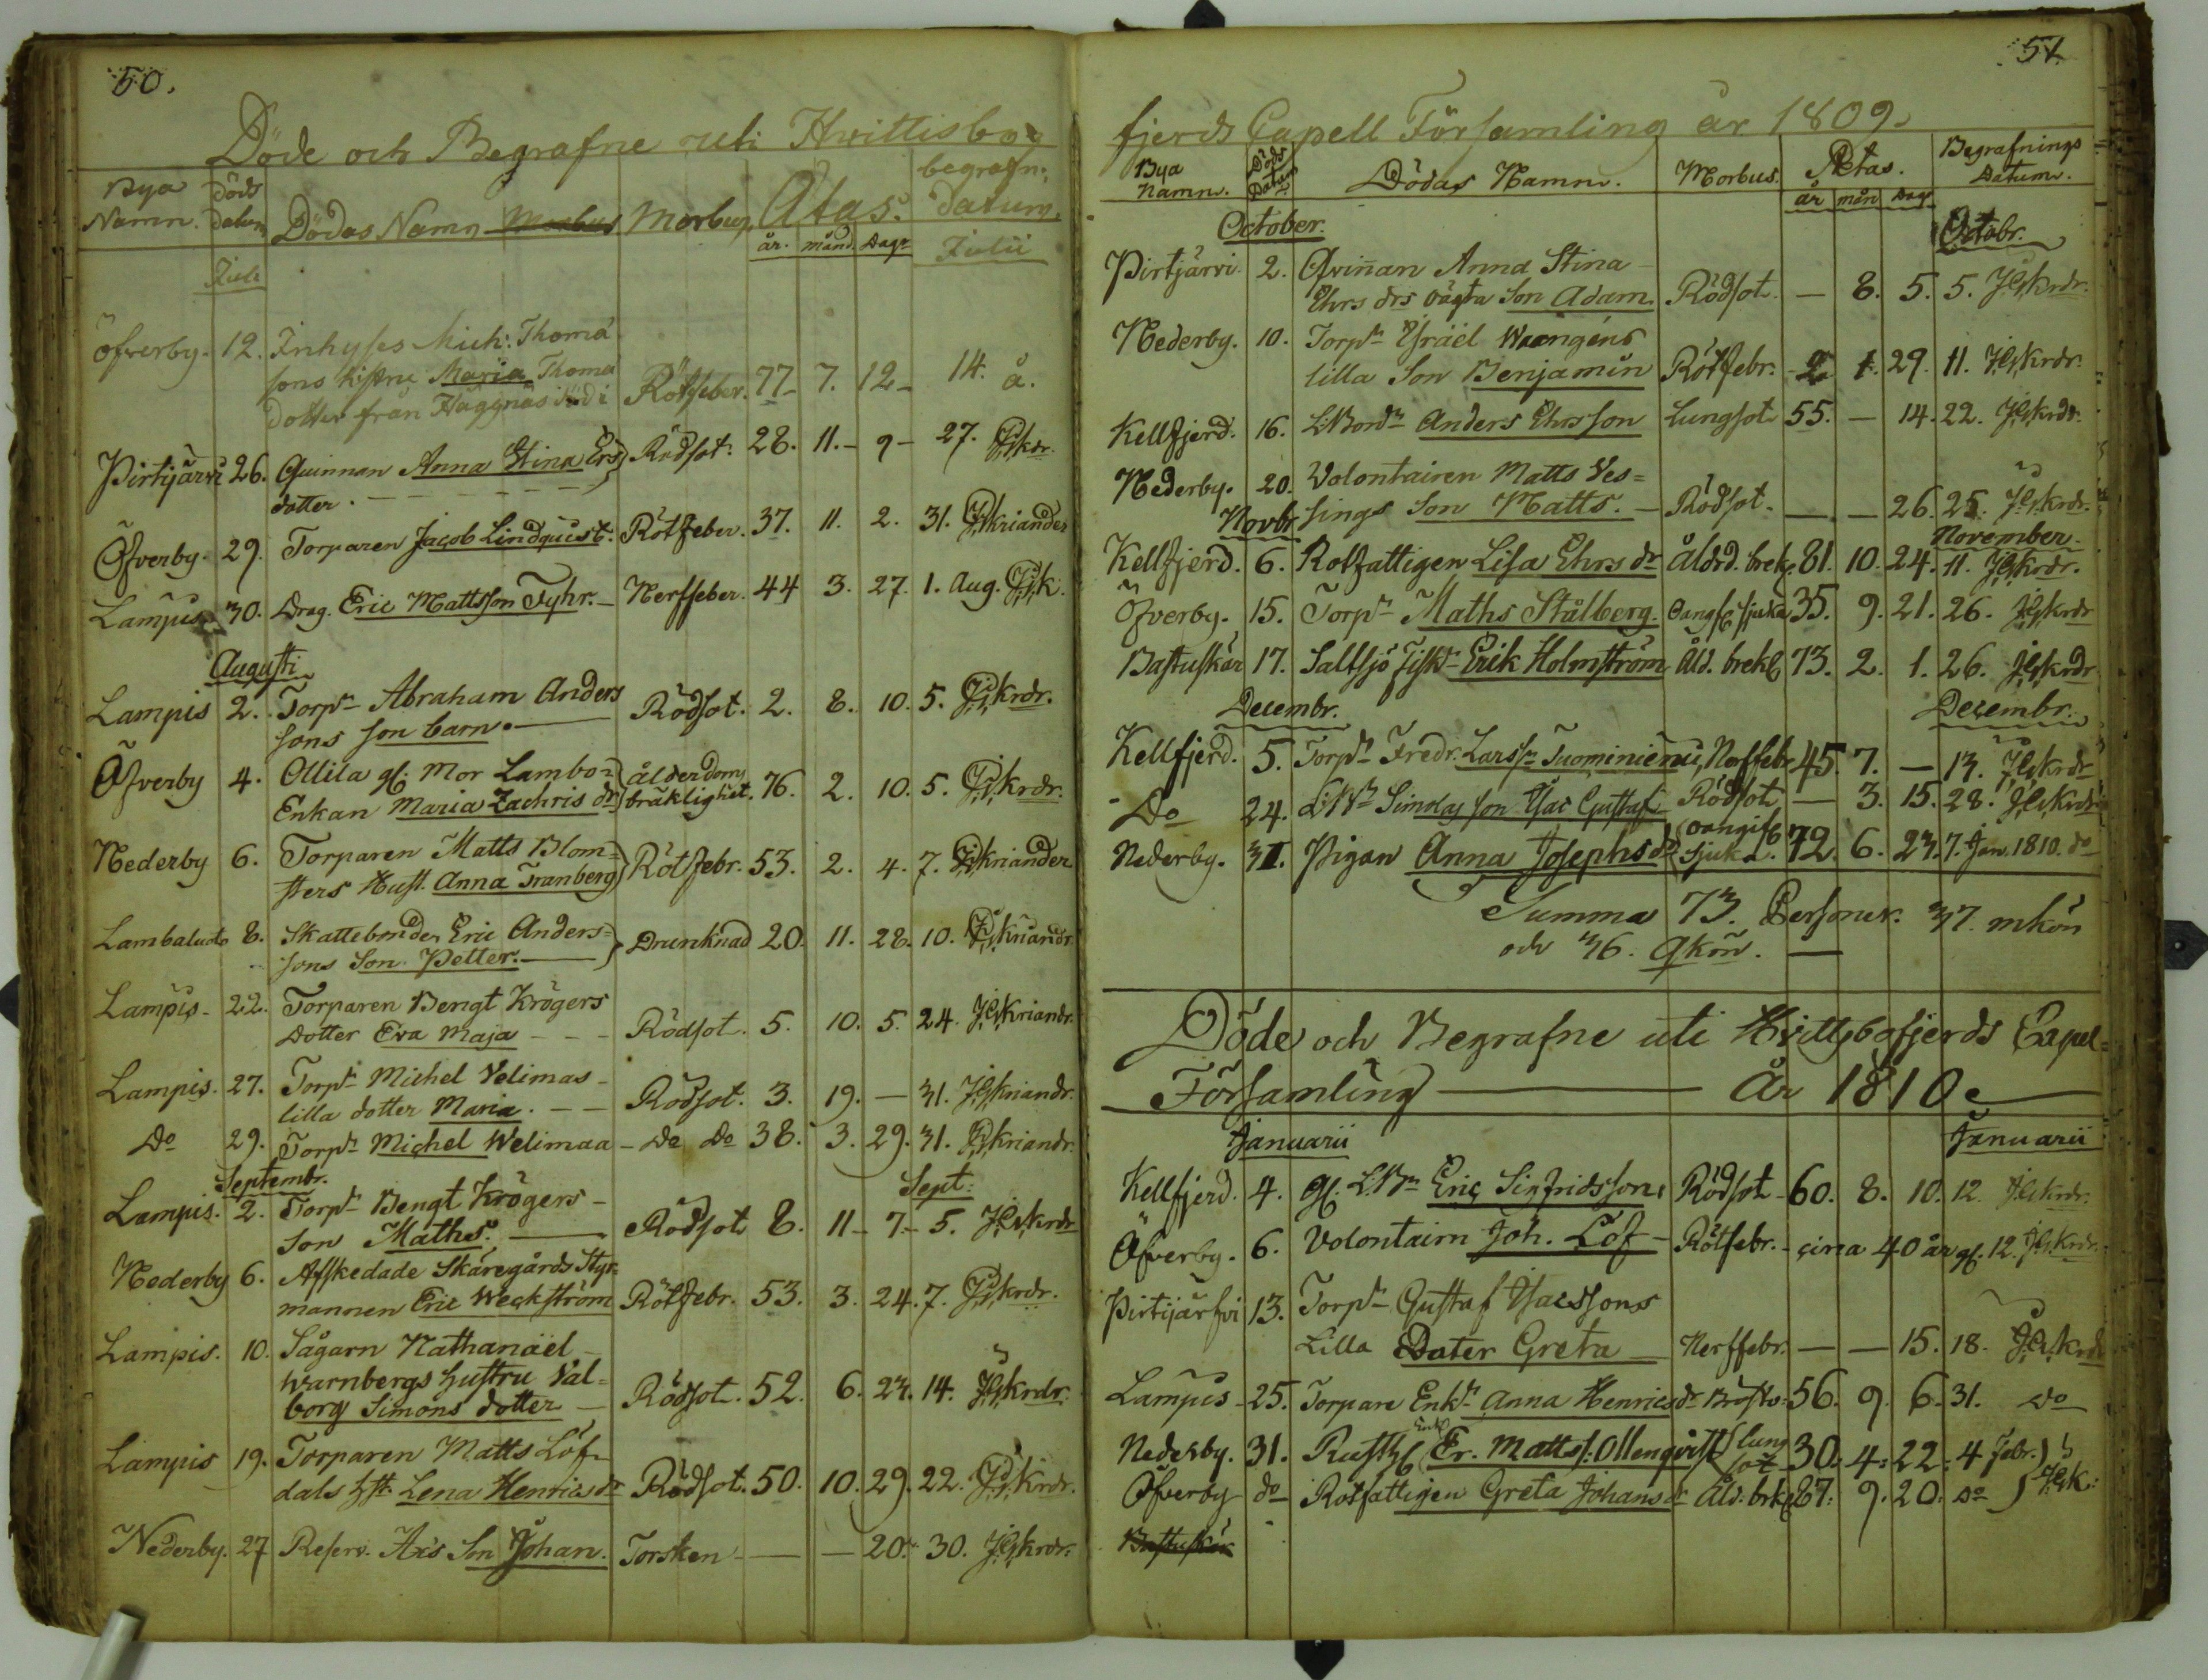 50.
Döde och Begrafne uti Hvittisbog
Bya Namn. döds datum Dödas Namn Morbus Morbus. Ætas. begrafn: datum.
år. månd. Dagr
Juli Julii
Öfverby. 12. Inhyses Mich: Thomæ
sons hustru Maria Thomæ Rötfeber. 77 7. 12 14. å.
dotter från Häggnäs död i
Pirtijärvi 26. Quinnan Anna Stina Ers Rödsot. 28. 11. 9 27.
dotter.
Öfverby. 29. Torparen Jacob Lindquist. Rötfeber. 37. 11. 2. 31. Kriander
Lampis 30. Drag. Eric Mattsson Fyhr. Nerffeber. 44 3. 27. 1. Aug.
Augusti
Lampis 2. Torpn Abraham Anders
sons son barn. Rödsot. 2. 8. 10. 5. Krdr.
Öfverby 4. Ollila gl. Mor Lambo= ålderdoms
Enkan Maria Zachris dr bräklighet. 76. 2. 10. 5. Krdr.
Nederby 6. Torparen Matts Blom=
sters Hust. Anna Tranberg Rötfebr. 53. 2. 4. 7. Kriander
Lambaludo 8. Skattebonden Eric Anders=
sons Son Petter. Drunknad 20. 11. 28. 10. Kriandr.
Lampis 22. Torparen Bengt Krögers
Dotter Eva Maja Rödsot. 5. 10. 5. 24. Kriandr.
Lampis. 27. Torpn Michel Velimas
lilla dotter Maria. Rödsot. 3. 19. — 31. Kriandr.
Do 29. Torpn Michel Welimaa Do Do 38. 3. 29. 31. Kriandr.
Septembr. Sept:
Lampis. 2. Torpn Bengt Krögers
Son Maths. Rödsot 8. 11 7 5. Krdr
Nederby 6. Afskedade Skäregårds Styr=
mannen Eric Weckström Rötfebr. 53. 3. 24. 7. Krdr.
Lampis. 10. Sågarn Nathanaël
Warnbergs hustru Val=
borg Simons dotter Rödsot. 52. 6. 23. 14. Krdr.
Lampis 19. Torparen Matts Löf=
dals hst. Lena Henrics dr Rödsot. 50. 10. 29. 22. Krdr.
Nederby. 27 Reserv. Ax's Son Johan. Torsken — — 20. 30. Krdr.
51.
fjerds Capell Församling år 1809.
Bya Namn. Döds Datum Dödas Namn. Morbus. Ætas. Begrafnings Datum.
år mån Dagr
October. Octobr.
Pirtjärvi. 2. Qvinnan Anna Stina
Ehrs drs oägta Son Adam. Rödsot. — 8. 5. 5. Krdr.
Nederby. 10. Torpn Israël Waangéns
lilla Son Benjamin Rötfebr. 2 1. 29. 11. Krdr.
Kellfjerd. 16. L:Bondn Anders Ehrsson Lungsot 55. — 14. 22. Krdr.
Nederby. 20. Volontairen Matts Ves=
sings Son Matts. Rödsot. — — 26. 25. Krdr.
Novbr. November.
Kellfjerd. 6. Rotfattigen Lisa Ehrs dr Åldrd. brek. 81. 10. 24. 11. Krdr.
Öfverby. 15. Torpn Maths Stålberg. Oangf. sjuka 35. 9. 21. 26. Krdr
Bastuskär 17. Saltsjö Fiskn Erik Holmström Åld. brekl 73. 2. 1. 26. Krdr
Decembr. Decembr.
Kellfjerd. 5. Torpn Fredr. Larssn Tuominiemi, Nerffebr. 45. 7. — 13. Krdr
Do 24. Simolas son Isac Gustaf Rödsot — 3. 15. 28. Krdr
Nederby. 31. Pigan Anna Josephs dr oangifl. Sjuka. 72. 6. 23. 7. Jan. 1810. do
Summa 73. Personer. 37. mkön
och 36. qkön.
Döde och Begrafne uti Hvittisbofjerds Capel=
Församling År 1810.
Januarii Januarii
Kellfjerd. 4. gl. L.Bn Eric Sigfridsson, Rödsot 60. 8. 10. 12. Krdr.
Öfverby. 6. Volontairn Joh. Löf Rötfebr. circa 40 år gl. 12. Krdr.
Pirtijärfvi 13. Torpn Gustaf Isacssons
Lilla Doter Greta Nerffebr. — — 15. 18. Krdr
Lampis 25. Torpare Enkn Anna Henricsdr Bröstv: 56. 9. 6. 31. do
Nederby. 31. Rusth. Er. Mattss: Ollenqvist lung sot 30. 4. 22. 4 Febr.
Öfverby do Rotfattigen Greta Johansdr Åld. brk. 87. 9. 20. do
Bastuskär